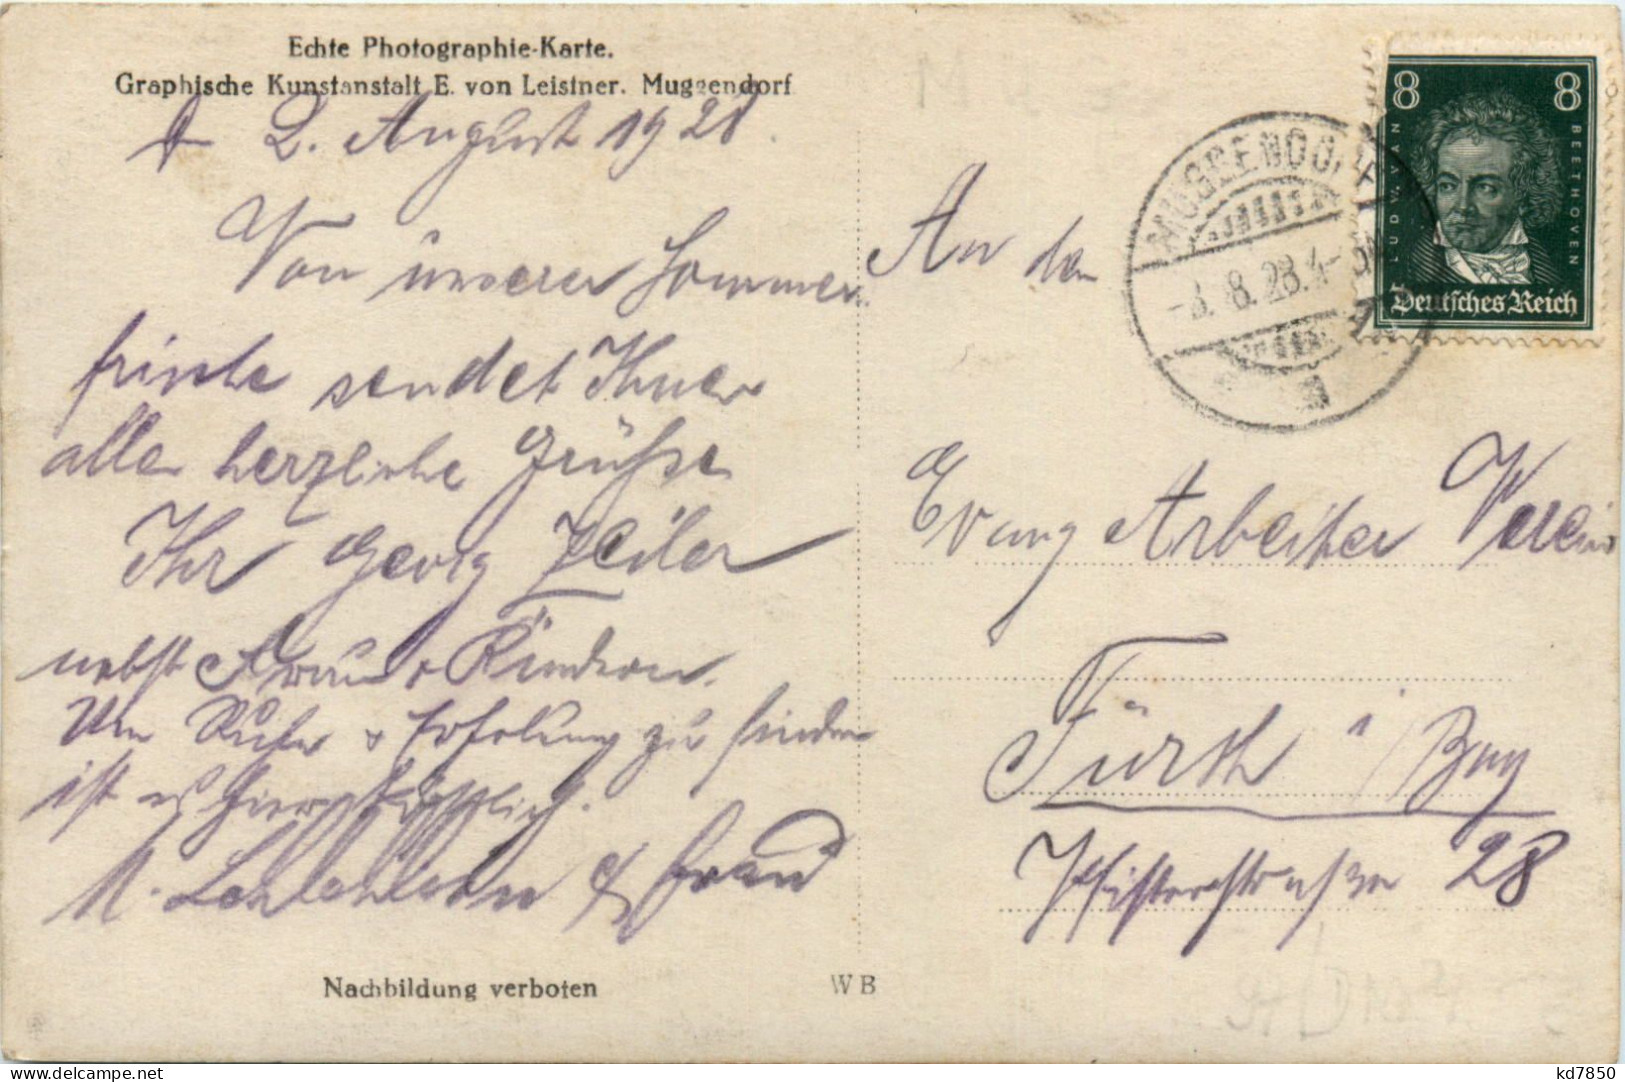 Echte Photographie-Karte.
Graphische Kunstanstalt E. von Leistner. Muggendorf
d 2. August 1928.
Von unserer Sommer
frische sendet Ihnen
allen herzliche Grüße
Ihr Georg Zeiler
nebst Frau u Kindern.
Um Ruhe & Erholung zu finden
ist es hier
M. & Frau
Nachbildung verboten
WB
MUGGENDORF
8.28.4-5N
8 8
LUDW. VAN BEETHOVEN
Deutsches Reich
An den
Evang Arbeiter Verein
Fürth i/Bay
Pfisterstraße 28
www.delcampe.net
kd7850